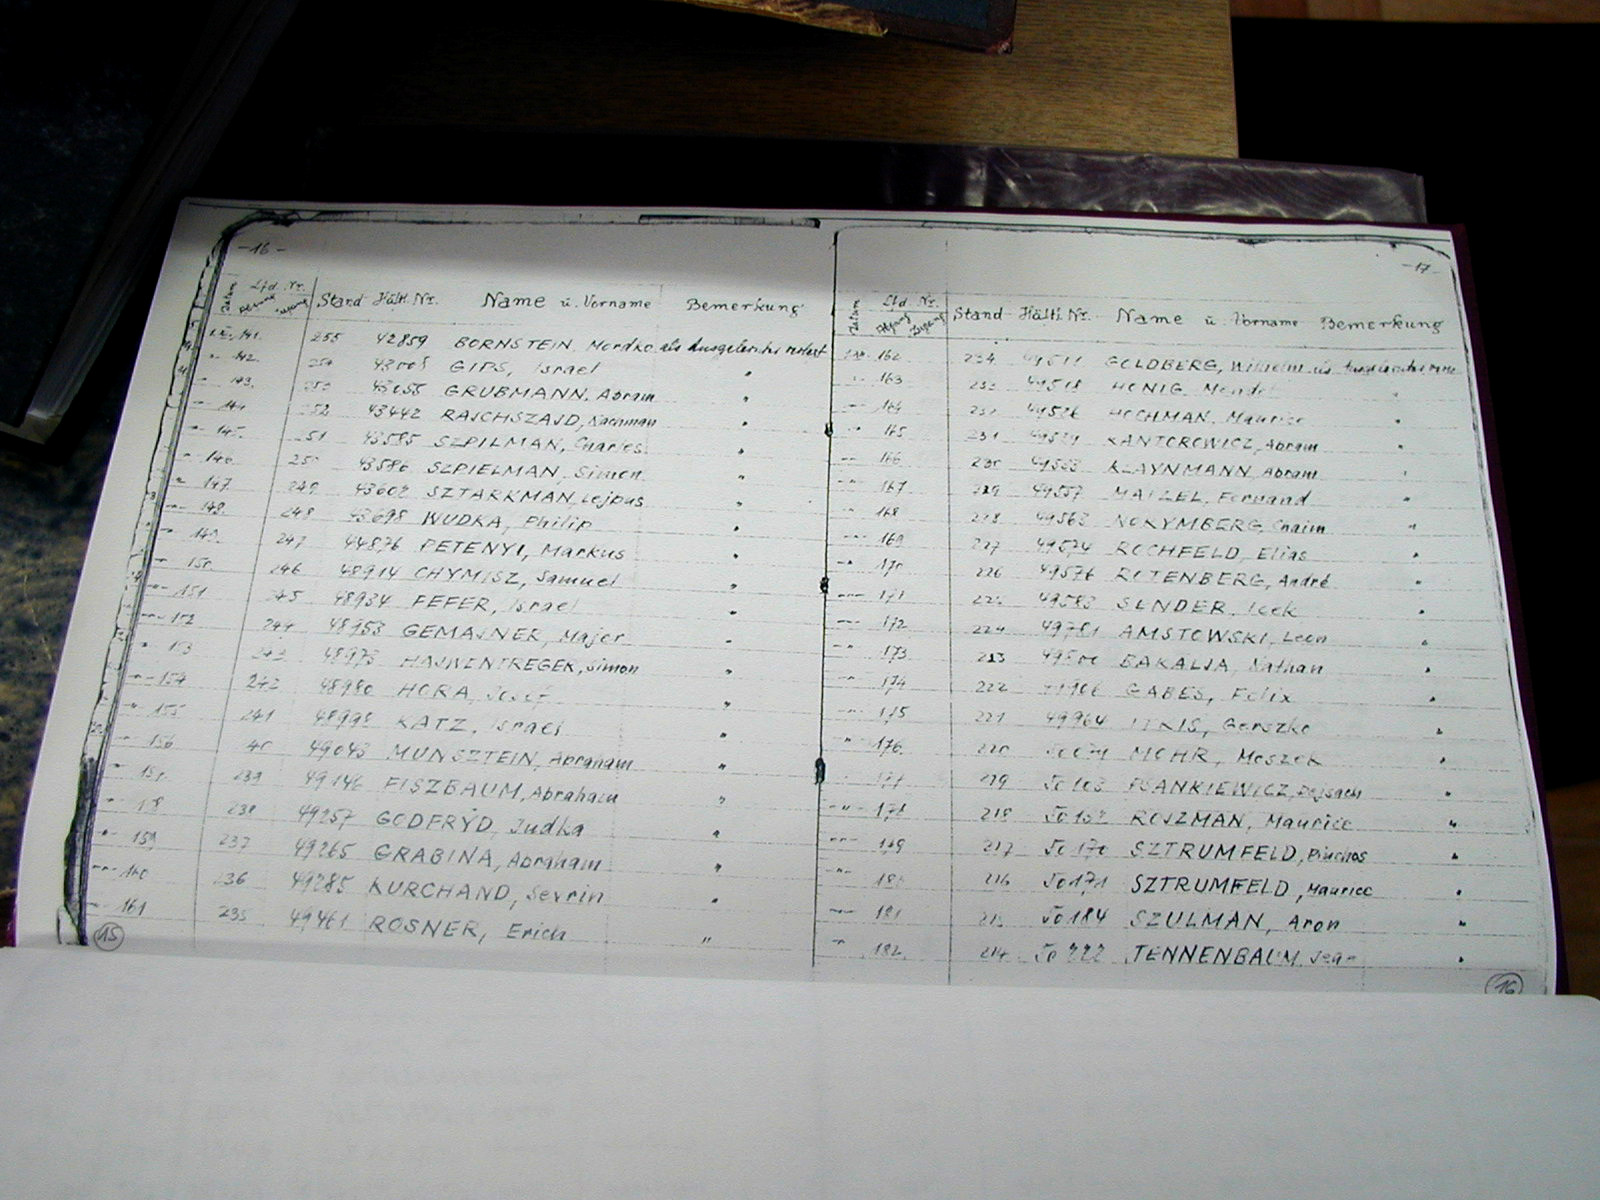 -16-
Datum Lfd. Nr. Abgang Zugang Stand Häftl. Nr. Name u. Vorname Bemerkung
141. 255 42859 BORNSTEIN, Mordko als
142. GIPS, Israel "
143. GRUBMANN, Abram "
144 43442 RAJCHSZAJD, Nachman "
145. 43585 SZPILMAN, Charles "
146. 43586 SZPIELMAN, Simon "
147 249 43602 SZTARKMAN, Lejbus "
148. 248 43698 WUDKA, Philip "
149. 247 44876 PETENYI, Markus "
150. 246 48914 CHYMISZ, Samuel "
151 48934 FEFER, Israel "
152 48953 GEMAJNER, Majer "
153 243 48973 Simon "
154 242 48980 HORA, Josef "
155 241 KATZ, Israel "
156 49043 MUNSZTEIN, Abraham "
239 49146 FISZBAUM, Abraham "
49257 GODFRYD, Judka "
159 237 49265 GRABINA, Abraham "
160 236 49285 KURCHAND, Sevrin "
161 235 49461 ROSNER, Erich "
15
-17-
Datum Lfd. Nr. Abgang Zugang Stand Häftl. Nr. Name u. Vorname Bemerkung
162 234 GOLDBERG, Wilhelm
163 HONIG, Mendel "
164 HOCHMAN, Maurice "
165 231 KANTOROWICZ, Abram "
166 KLAYNMANN, Abram "
167 229 49557 MAIZEL, Fernand "
168 228 49563 NORYMBERG, Chaim "
169 227 49574 ROCHFELD, Elias "
170 226 49576 ROTENBERG, André "
171 49583 SENDER, Icek "
172 224 49781 AMSTOWSKI, Leon "
173 223 BAKALJA, Nathan "
174 222 GABES, Felix "
175 221 49964 ITKIS, Gerszko "
176 220 MOHR, Moszek "
219 50103 "
218 ROJZMAN, Maurice "
179 217 50170 SZTRUMFELD, Pinchos "
216 50171 SZTRUMFELD, Maurice "
181 215 50184 SZULMAN, Aron "
182. 214 50222 TENNENBAUM, "
16